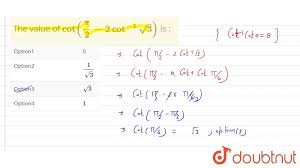 The value of cot(π/2 − 2cot⁻¹√3) is :
{ Cot⁻¹ Cotθ = θ
Option1 0
Option2 1/√3
Option3 √3
Option4 1
⇒ Cot (π/2 − 2 Cot⁻¹√3)
⇒ Cot (π/2 − 2 Cot⁻¹ Cot π/6)
⇒ Cot (π/2 − 2 × π/6)
⇒ Cot (π/2 − π/3)
⇒ Cot (π/6) = √3 , option(3)
doubtnut